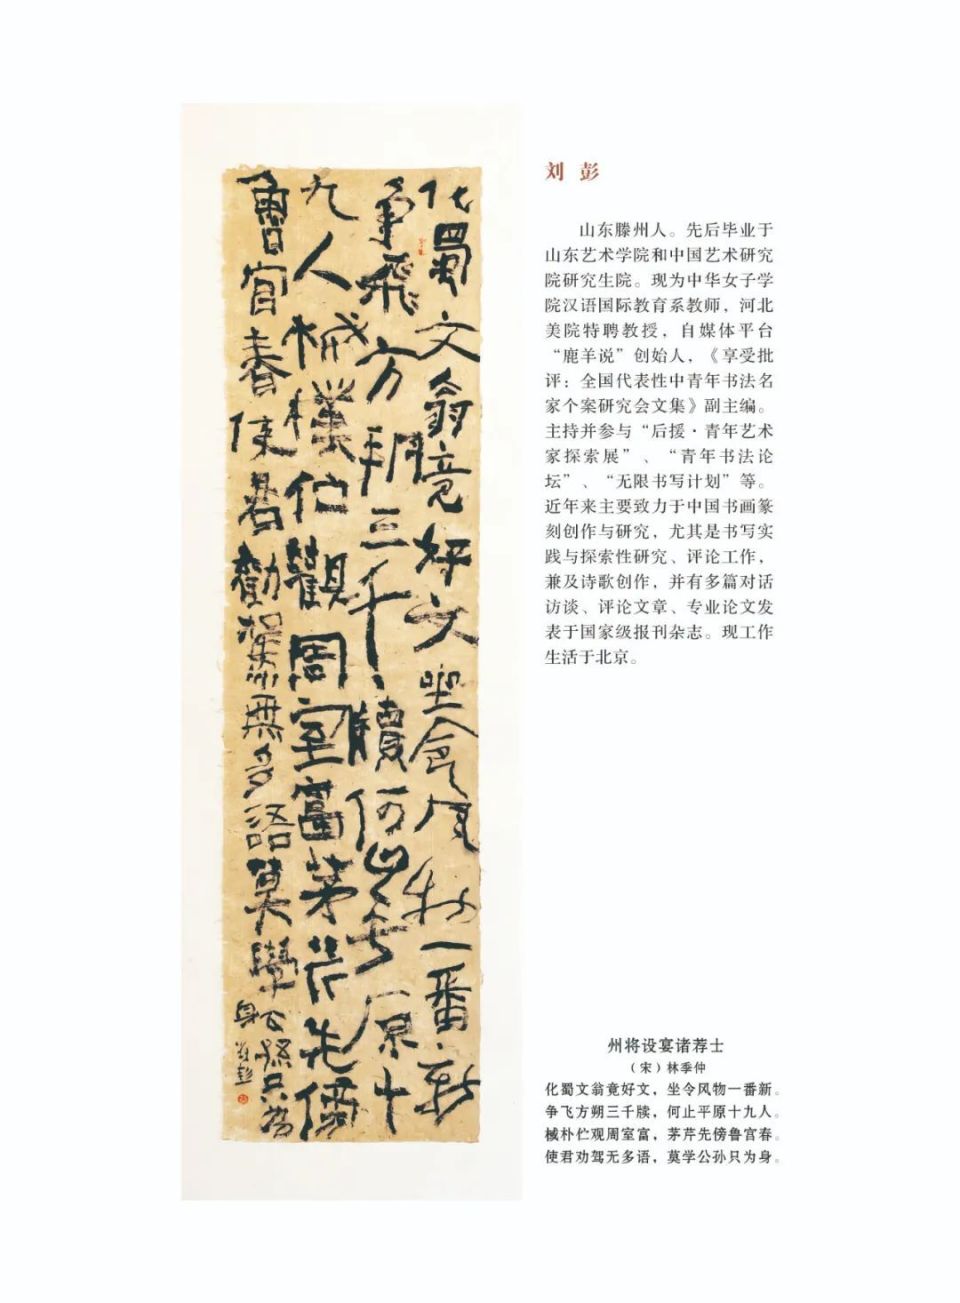 化蜀文翁竟好文坐令风物一番新
争飛方朔三千牘何止平原十
九人棫樸伫觀周室富茅芹先傍
魯宫春使君勸駕無多語莫學公孫只為
身 刘彭
刘 彭
山东滕州人。先后毕业于
山东艺术学院和中国艺术研究
院研究生院。现为中华女子学
院汉语国际教育系教师，河北
美院特聘教授，自媒体平台
“鹿羊说”创始人，《享受批
评：全国代表性中青年书法名
家个案研究会文集》副主编。
主持并参与“后援·青年艺术
家探索展”、“青年书法论
坛”、“无限书写计划”等。
近年来主要致力于中国书画篆
刻创作与研究，尤其是书写实
践与探索性研究、评论工作，
兼及诗歌创作，并有多篇对话
访谈、评论文章、专业论文发
表于国家级报刊杂志。现工作
生活于北京。
州将设宴诸荐士
（宋）林季仲
化蜀文翁竟好文，坐令风物一番新。
争飞方朔三千牍，何止平原十九人。
棫朴伫观周室富，茅芹先傍鲁宫春。
使君劝驾无多语，莫学公孙只为身。